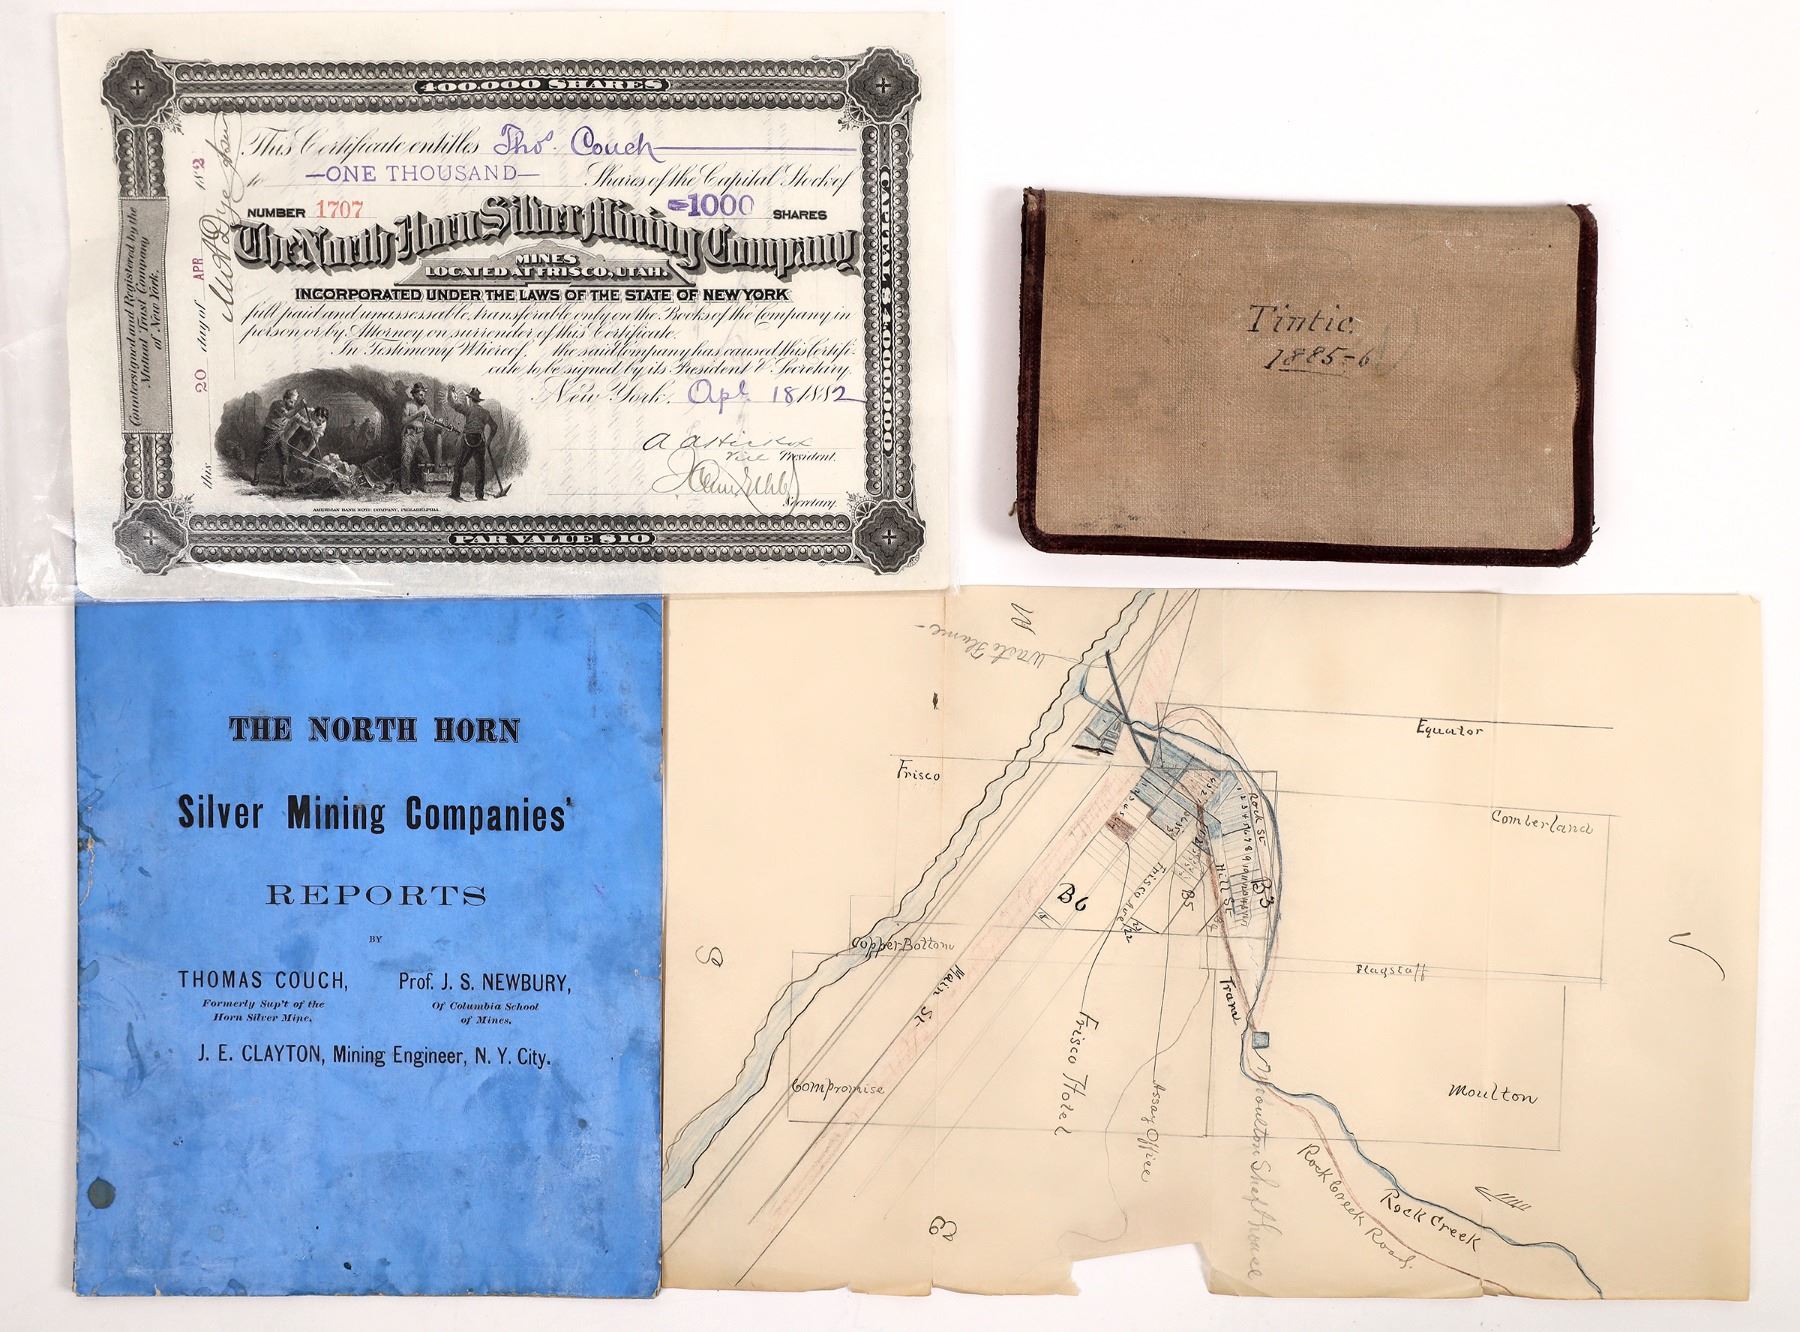 400,000 SHARES
This Certificate entitles Thos. Couch
to —ONE THOUSAND— Shares of the Capital Stock of
NUMBER 1707 1000 SHARES
The North Horn Silver Mining Company
MINES
LOCATED AT FRISCO, UTAH.
INCORPORATED UNDER THE LAWS OF THE STATE OF NEW YORK
full paid and unassessable, transferable only on the Books of the Company in
person or by Attorney on surrender of this Certificate.
In Testimony Whereof, the said Company has caused this Certifi-
cate to be signed by its President & Secretary.
New York, Apl. 18, 1882
Vice President.
Secretary.
AMERICAN BANK NOTE COMPANY, PHILADELPHIA.
PAR VALUE $10
CAPITAL $4,000,000
Countersigned and Registered by the
Mutual Trust Company
of New York.
this 20 day of APR 1882
Tintic.
1885-6
THE NORTH HORN
Silver Mining Companies'
REPORTS
BY
THOMAS COUCH, Prof. J. S. NEWBURY,
Formerly Sup't of the Of Columbia School
Horn Silver Mine. of Mines.
J. E. CLAYTON, Mining Engineer, N. Y. City.
N
Waste Flume
Equator
Frisco
Comberland
Rock St
Hill St
B3
B5
B6
Frisco Ave
Copper-Bottom
Flagstaff
Main St
Tram
Frisco Hotel
Assay Office
Compromise
Moulton
Moulton Shaft House
Rock Creek
Rock Creek Road.